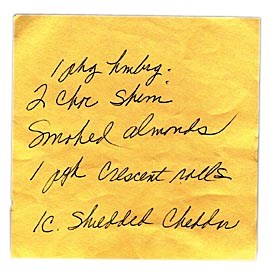 1 pkg hmbrg.
2 chc
Smoked almonds
1 pgk Crescent rolls
1c. Shredded Cheddar